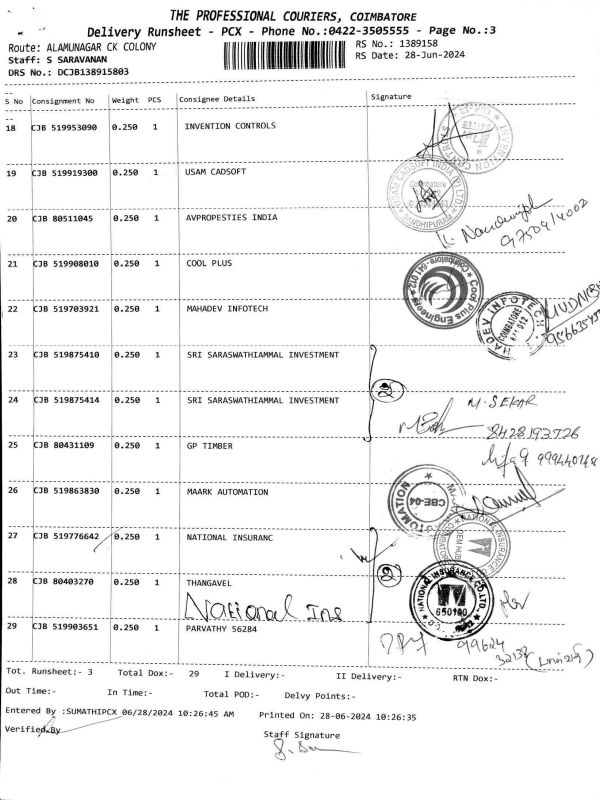 THE PROFESSIONAL COURIERS, COIMBATORE
Delivery Runsheet - PCX - Phone No.:0422-3505555 - Page No.:3
Route: ALAMUNAGAR CK COLONY
RS No.: 1389158
Staff: S SARAVANAN
RS Date: 28-Jun-2024
DRS No.: DCJB138915803
S No Consignment No Weight PCS Consignee Details Signature
18 CJB 519953090 0.250 1 INVENTION CONTROLS
19 CJB 519919300 0.250 1 USAM CADSOFT
20 CJB 80511045 0.250 1 AVPROPESTIES INDIA
21 CJB 519908010 0.250 1 COOL PLUS
Cool Plus Engineers
Coimbatore-641 012
22 CJB 519703921 0.250 1 MAHADEV INFOTECH
23 CJB 519875410 0.250 1 SRI SARASWATHIAMMAL INVESTMENT
24 CJB 519875414 0.250 1 SRI SARASWATHIAMMAL INVESTMENT
M. SEKAR
8428193726
25 CJB 80431109 0.250 1 GP TIMBER
26 CJB 519863830 0.250 1 MAARK AUTOMATION
CBE-04
27 CJB 519776642 0.250 1 NATIONAL INSURANC
28 CJB 80403270 0.250 1 THANGAVEL
National Ins
NATIONAL INSURANCE CO.LTD.
650100
29 CJB 519903651 0.250 1 PARVATHY 56284
99624
Tot. Runsheet:- 3 Total Dox:- 29 I Delivery:- II Delivery:- RTN Dox:-
Out Time:- In Time:- Total POD:- Delvy Points:-
Entered By :SUMATHIPCX 06/28/2024 10:26:45 AM Printed On: 28-06-2024 10:26:35
Verified By
Staff Signature